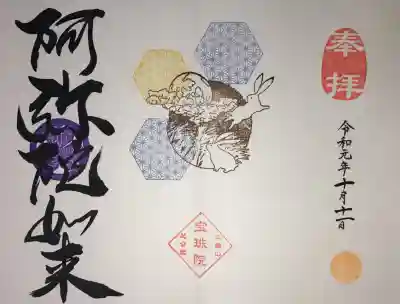 奉拝
令和元年十月十一日
宝珠院
阿弥陀如来